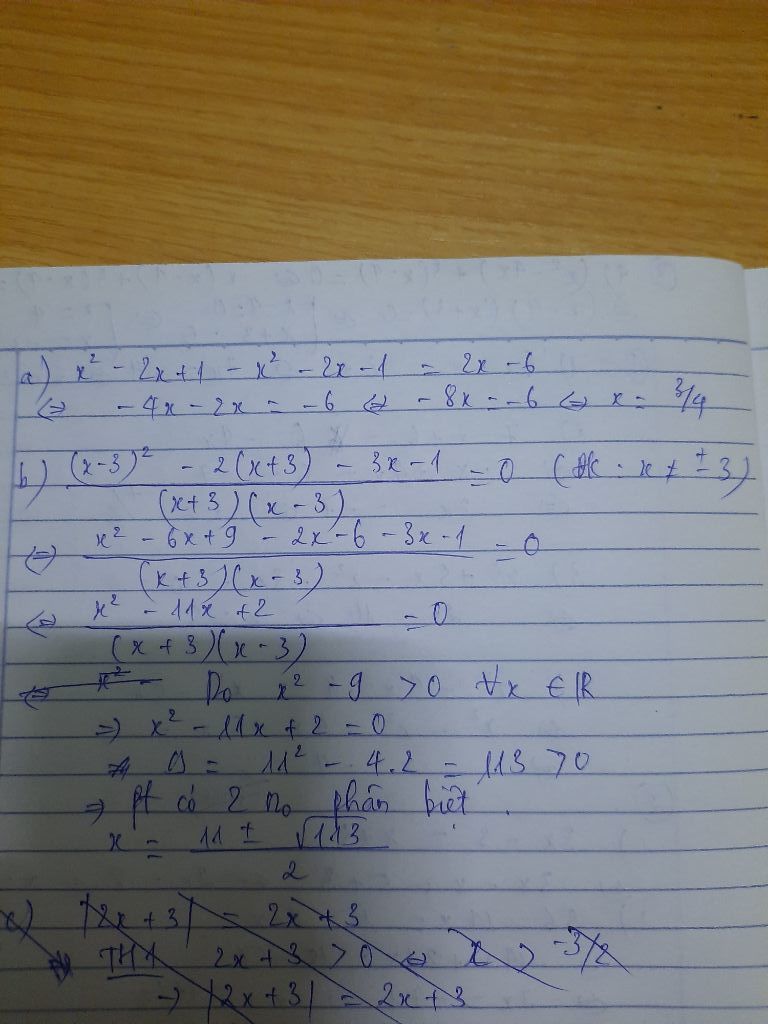 a) x² - 2x+1 - x² - 2x - 1 = 2x - 6
⇔ -4x - 2x = -6 ⇔ -8x = -6 ⇔ x = 3/4
b) ((x-3)² - 2(x+3) - 3x - 1)/((x+3)(x-3)) = 0 (ĐK : x ≠ ± 3)
⇔ (x² - 6x + 9 - 2x - 6 - 3x - 1)/((x+3)(x-3)) = 0
⇔ (x² - 11x + 2)/((x+3)(x-3)) = 0
⇔ x² - Do x² - 9 > 0 ∀x ∈ ℝ
⇒ x² - 11x + 2 = 0
Δ = 11² - 4.2 = 113 > 0
⇒ pt có 2 no phân biệt.
x = (11 ± √113)/2
c) |2x + 3| = 2x + 3
TH1 2x + 3 > 0 ⇔ x > -3/2
→ |2x+3| = 2x+3